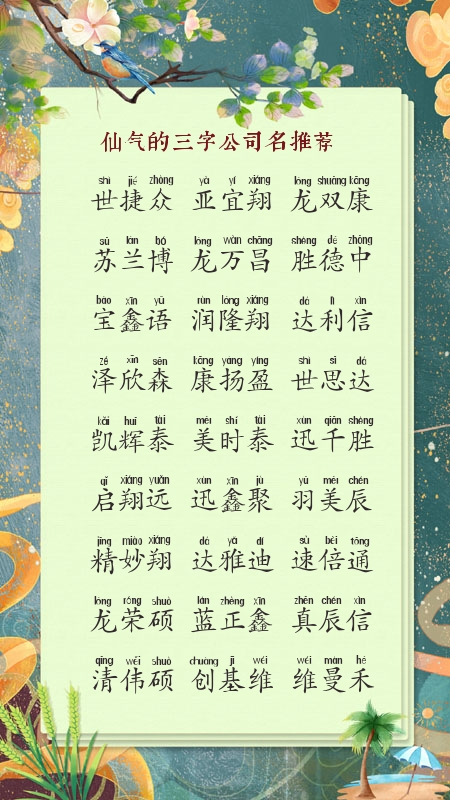 仙气的三字公司名推荐
shì jié zhòng yà yí xiáng lóng shuāng kāng
世捷众 亚宜翔 龙双康
sū lán bó lóng wàn chāng shèng dé zhōng
苏兰博 龙万昌 胜德中
bǎo xīn yǔ rùn lóng xiáng dá lì xìn
宝鑫语 润隆翔 达利信
zé xīn sēn kāng yáng yíng shì sī dá
泽欣森 康扬盈 世思达
kǎi huī tài měi shí tài xùn qiān shèng
凯辉泰 美时泰 迅千胜
qǐ xiáng yuǎn xùn xīn jù yǔ měi chén
启翔远 迅鑫聚 羽美辰
jīng miào xiáng dá yǎ dí sù bèi tōng
精妙翔 达雅迪 速倍通
lóng róng shuò lán zhèng xīn zhēn chén xìn
龙荣硕 蓝正鑫 真辰信
qīng wěi shuò chuàng jī wéi wéi màn hé
清伟硕 创基维 维曼禾